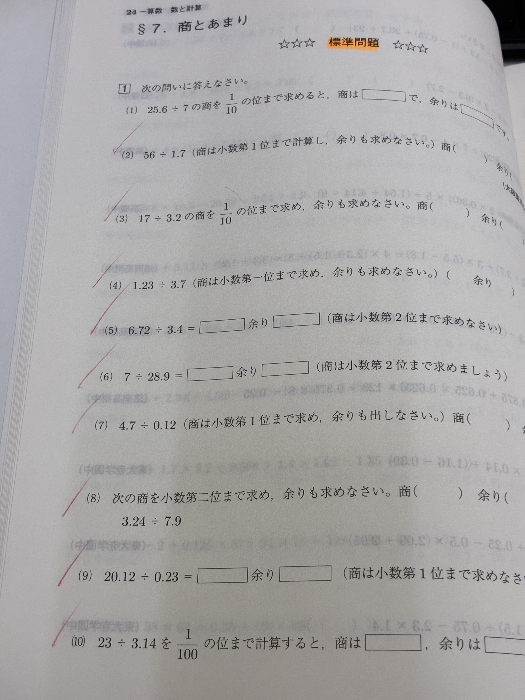 24 −算数 数と計算
§7. 商とあまり
☆☆☆ 標準問題 ☆☆☆
1 次の問いに答えなさい。
(1) 25.6 ÷ 7 の商を 1/10 の位まで求めると，商は で，余りは です。
(2) 56 ÷ 1.7 (商は小数第1位まで計算し，余りも求めなさい。) 商( ) 余り(
(3) 17 ÷ 3.2 の商を 1/10 の位まで求め，余りも求めなさい。商( ) 余り(
(4) 1.23 ÷ 3.7 (商は小数第一位まで求め，余りも求めなさい。) ( 余り )
(5) 6.72 ÷ 3.4 = 余り (商は小数第2位まで求めなさい)
(6) 7 ÷ 28.9 = 余り (商は小数第2位まで求めましょう)
(7) 4.7 ÷ 0.12 (商は小数第1位まで求め，余りも出しなさい。) 商( )
(8) 次の商を小数第二位まで求め，余りも求めなさい。商( ) 余り(
3.24 ÷ 7.9
(9) 20.12 ÷ 0.23 = 余り (商は小数第1位まで求めなさ
(10) 23 ÷ 3.14 を 1/100 の位まで計算すると，商は ，余りは